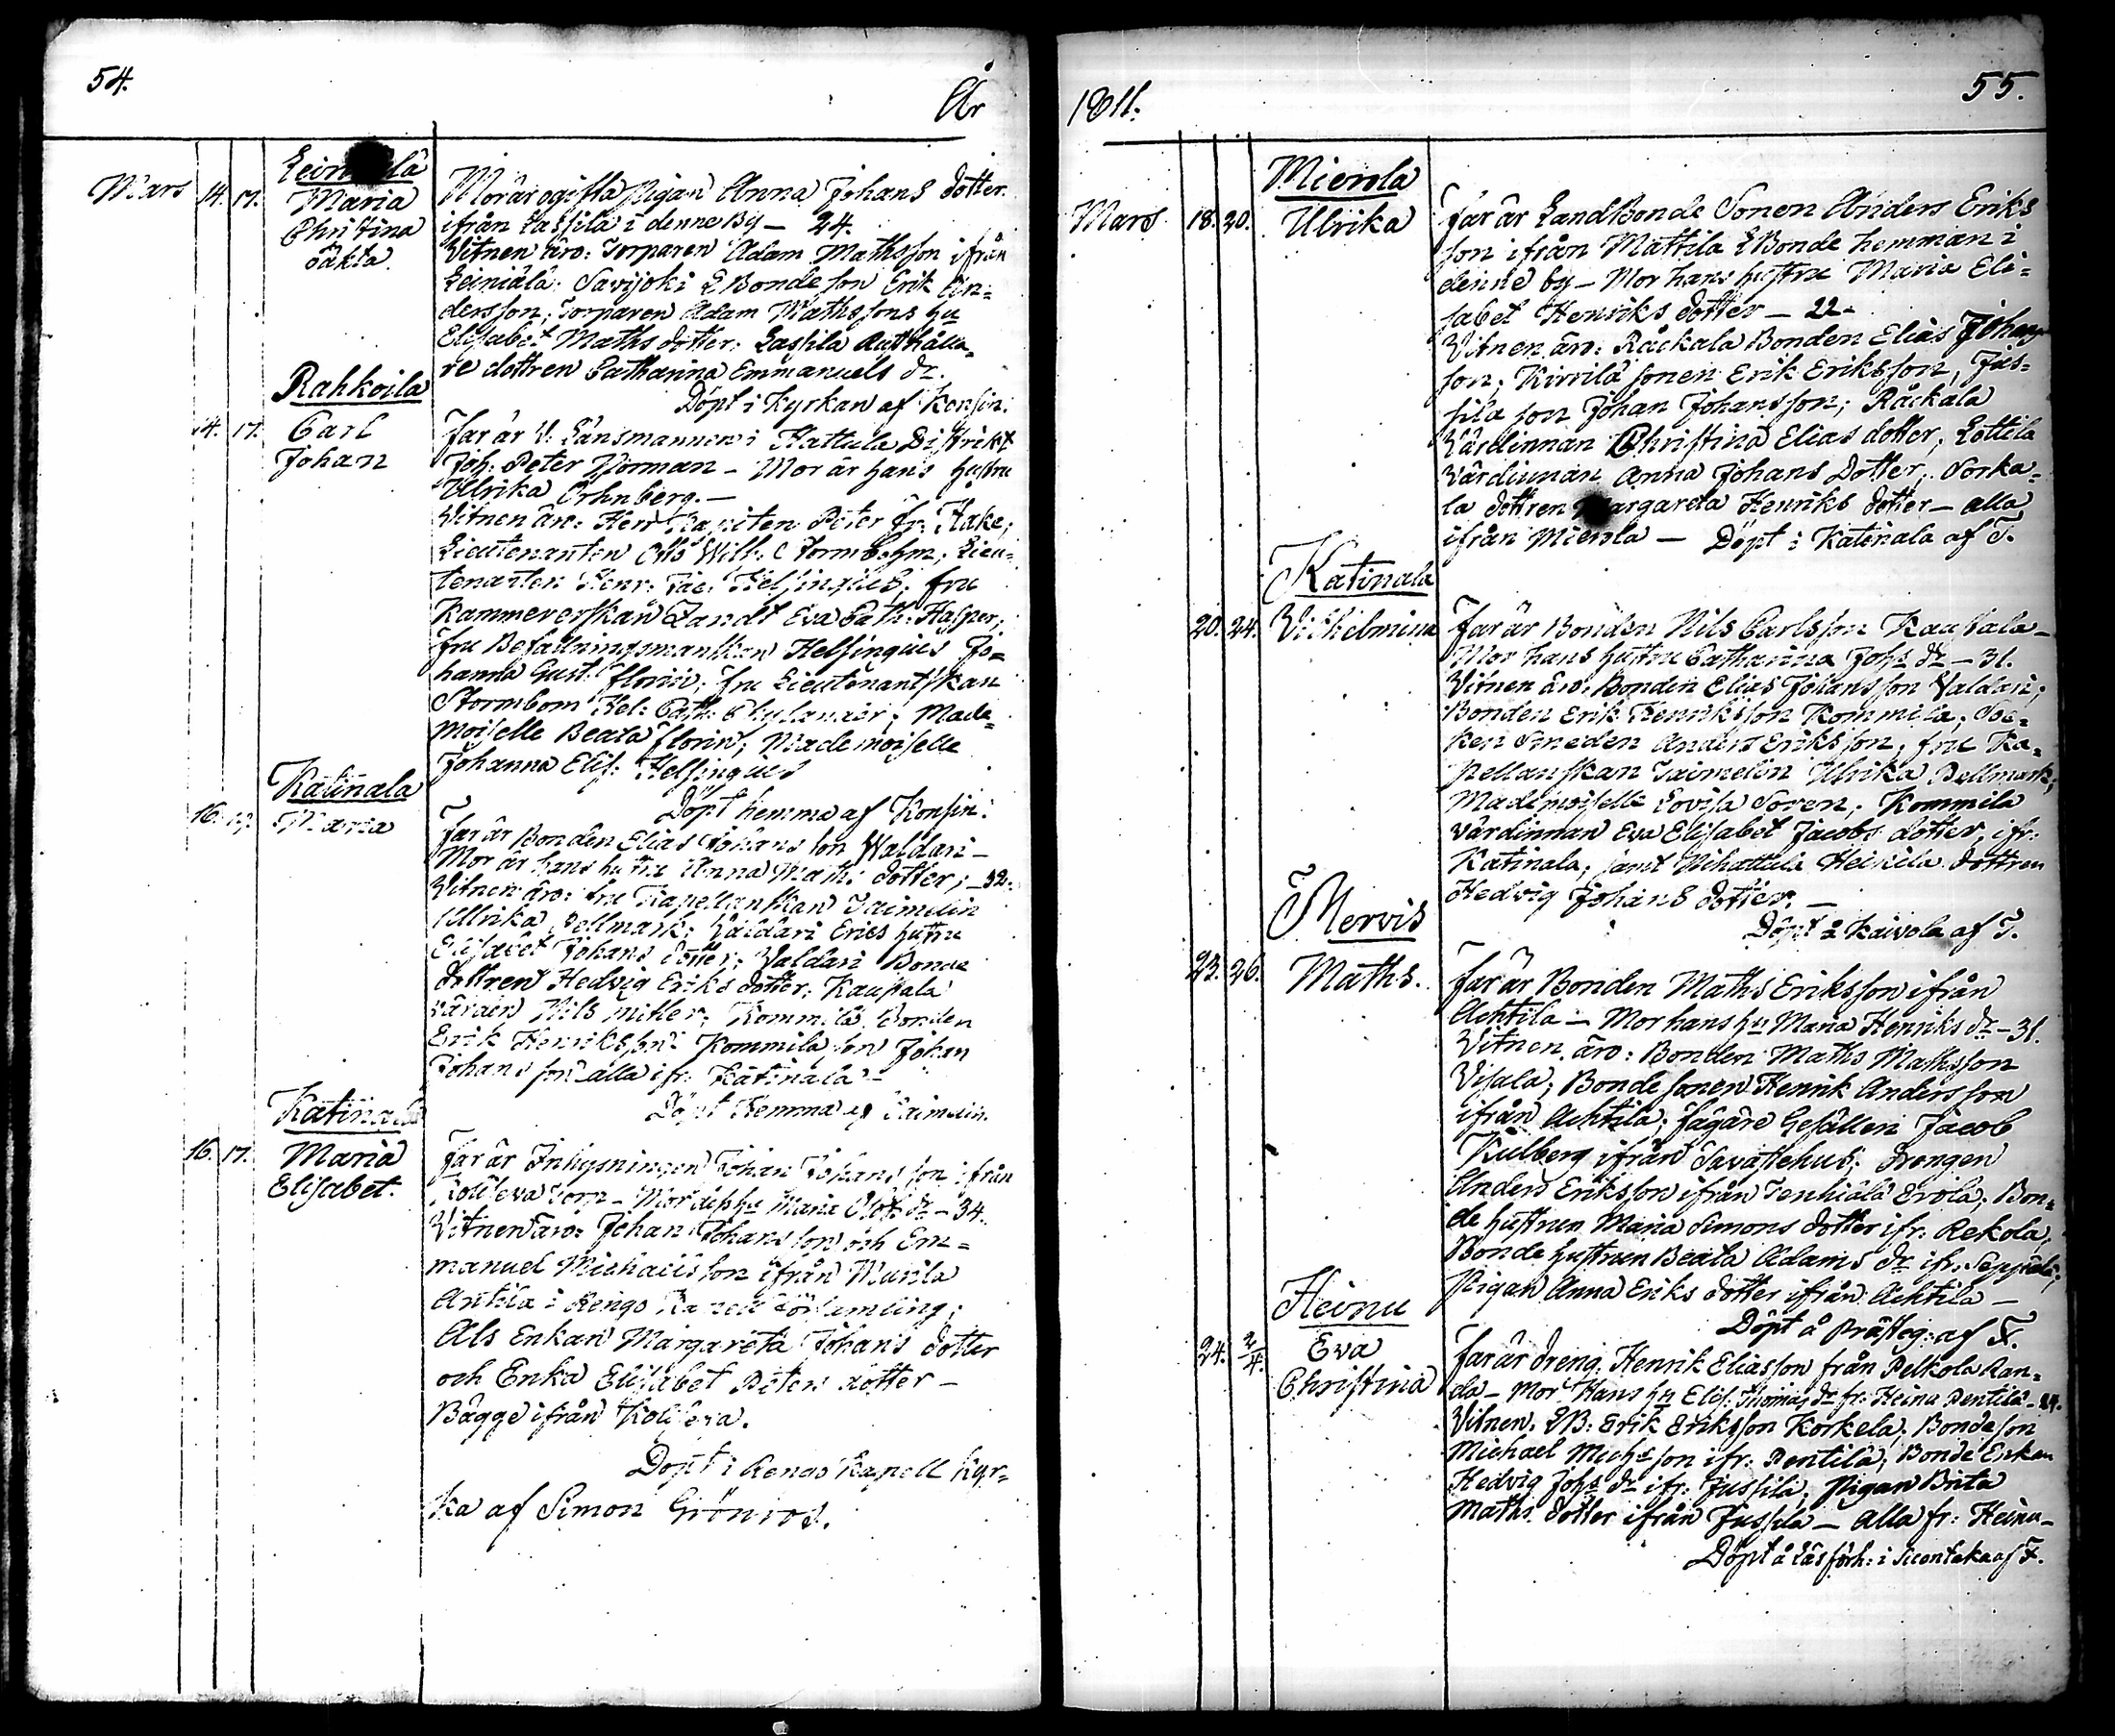 54.
År
Mars 14. 17. Maria
Christina
oäkta.
Mor är ogifta Pigan Anna Johans dotter
ifrån Laßila i denne By – 24.
Vitnen äro: Torparen Adam Mathsson ifrån
Leiniälä: Savijoki LBonde son Erik An=
dersson; Torparen Adam Mathssons hu
Elisabet Maths dotter; Laßila Rusthålla=
re dottren Catharina Emmanuels dr.
Döpt i Kyrkan af Konsin:
Rahkoila
14. 17. Carl
Johan
Far är V. Länsmannen i Hattula Distrikt
Joh: Peter Njorman – Mor är hans hustru
Ulrika Orhnberg. –
Vitnen äro: Herr Kapiten Peter fr: Hake;
Lieutenanten Otto Wilh: Stormbohm; Lieu=
tenanten Henr: Jac: Helsingius; fru
Kammererskan Zandt Eva Cath: Hasper;
fru Befallningsmanskan Helsingius Jo=
hanna Gust: florin; fru Lieutenantskan
Stormbom Hel: Cath:
Made=
moiselle Beata florin; Mademoiselle
Johanna Elis: Helsingius
Döpt hemma af Konsin:
Katinala
16. Maria
Far är Bonden Elias Johansson Waldari –
Mor är hans hustru Anna Math: dotter; – 32.
Vitnen äro: fru Kapellanskan Jaimelin
Ulrika Pellmark; Valdari Erics hustru
Elisabet Johans dotter; Valdari Bonde
dottren Hedvig Eriks dotter; Kaupala
värden Nils Miller; Kommila Bonden
Erik Henriksson; Kommila son Johan
Johansson alla ifr: Katinala –
Döpt hemma af Jaimelin.
Katinala
16. 17. Maria
Elisabet.
Far är Inhysningen Johan Johansson ifrån
torp – Mor dess hu Maria dr – 34.
Vitnen äro: Johan Johansson och Em=
manuel Michaelsson ifrån
Anttila i Rengo Kapell församling;
Als Enkan Margareta Johans dotter
och Enka Elisabet Peters dotter –
Bägge ifrån
Döpt i Rengo Kapell kyr=
ka af Simon Grönroos.
1811.
55.
Mierola
Mars 18. 20. Ulrika
Far är LandBonde Sonen Anders Eriks
son ifrån Mattila LBonde hemman i
denne by – Mor hans hustru Maria Eli=
sabet Henriks dotter – 22 –
Vitnen äro: Råckala Bonden Elias Johans
son; Kirrilä sonen Erik Eriksson, Jus=
sila son Johan Johansson; Råckala
Värdinnan Christina Elias dotter; Lottila
värdinnan Anna Johans Dotter; Sorka=
la dottren Margareta Henriks dotter – alla
ifrån Mierola – Döpt i Katinala af T.
Katinala
20. 24. Vilhelmina
Far är Bonden Nils Carlsson Kaupala –
Mor hans hustru Catharina Johs dr – 31.
Vitnen äro: Bonden Elias Johansson Valdari;
Bonden Erik Henriksson Kommila; Soc=
ken Smeden Anders Eriksson; fru Ka=
pellanskan Jaimelin Ulrika Pellmark;
Mademoiselle Lovisa Soren; Kommila
värdinnan Eva Elisabet Jacobs dotter, ifr:
Katinala; samt Vihattula Heikila dottren
Hedvig Johans dotter. –
Döpt å Kaivola af T.
Mervis
23. 26. Maths.
Far är Bonden Maths Eriksson ifrån
Achtila – Mor hans hu Maria Henriks dr – 31.
Vitnen äro: Bonden Maths Mathsson
Visala; Bonde sonen Henrik Andersson
ifrån Achtila; fägare Gesällen Jacob
Kulberg ifrån Tavastehus; drengen
Anders Eriksson ifrån Tenhiälä Erola; Bon=
de hustrun Maria Simons dotter ifr: Rekola,
Bonde hustrun Beata Adams dr ifr. Seppälä;
Pigan Anna Eriks dotter ifrån Achtila –
Döpt å Prästeg: af F.
Heinu
24. 2/4. Eva
Christina
Far är dreng. Henrik Eliasson från Pelkola Ran=
da – Mor Hans hu Elis: Thomas dr fr: Heinu Pentilä – 24.
Vitnen. LB: Erik Eriksson Korkela; Bonde son
Michael Michsson ifr: Pentilä; Bonde Enkan
Hedvig Johs dr ifr: Jussila; Pigan Brita
Maths. dotter ifrån Jussila – alla fr: Heinu –
Döpt å Läsförh: i Suontaka af F.